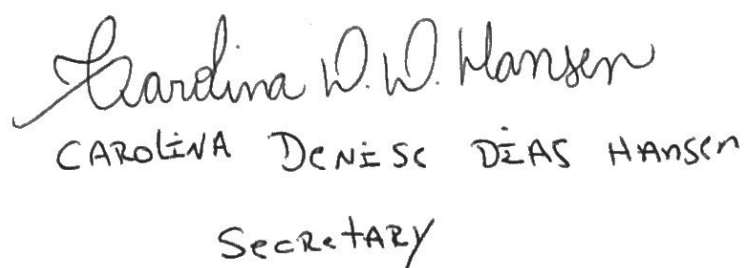 Carolina D. D. Hansen
CAROLiNA DeNiSe DiAS HANSen
SecRetARY